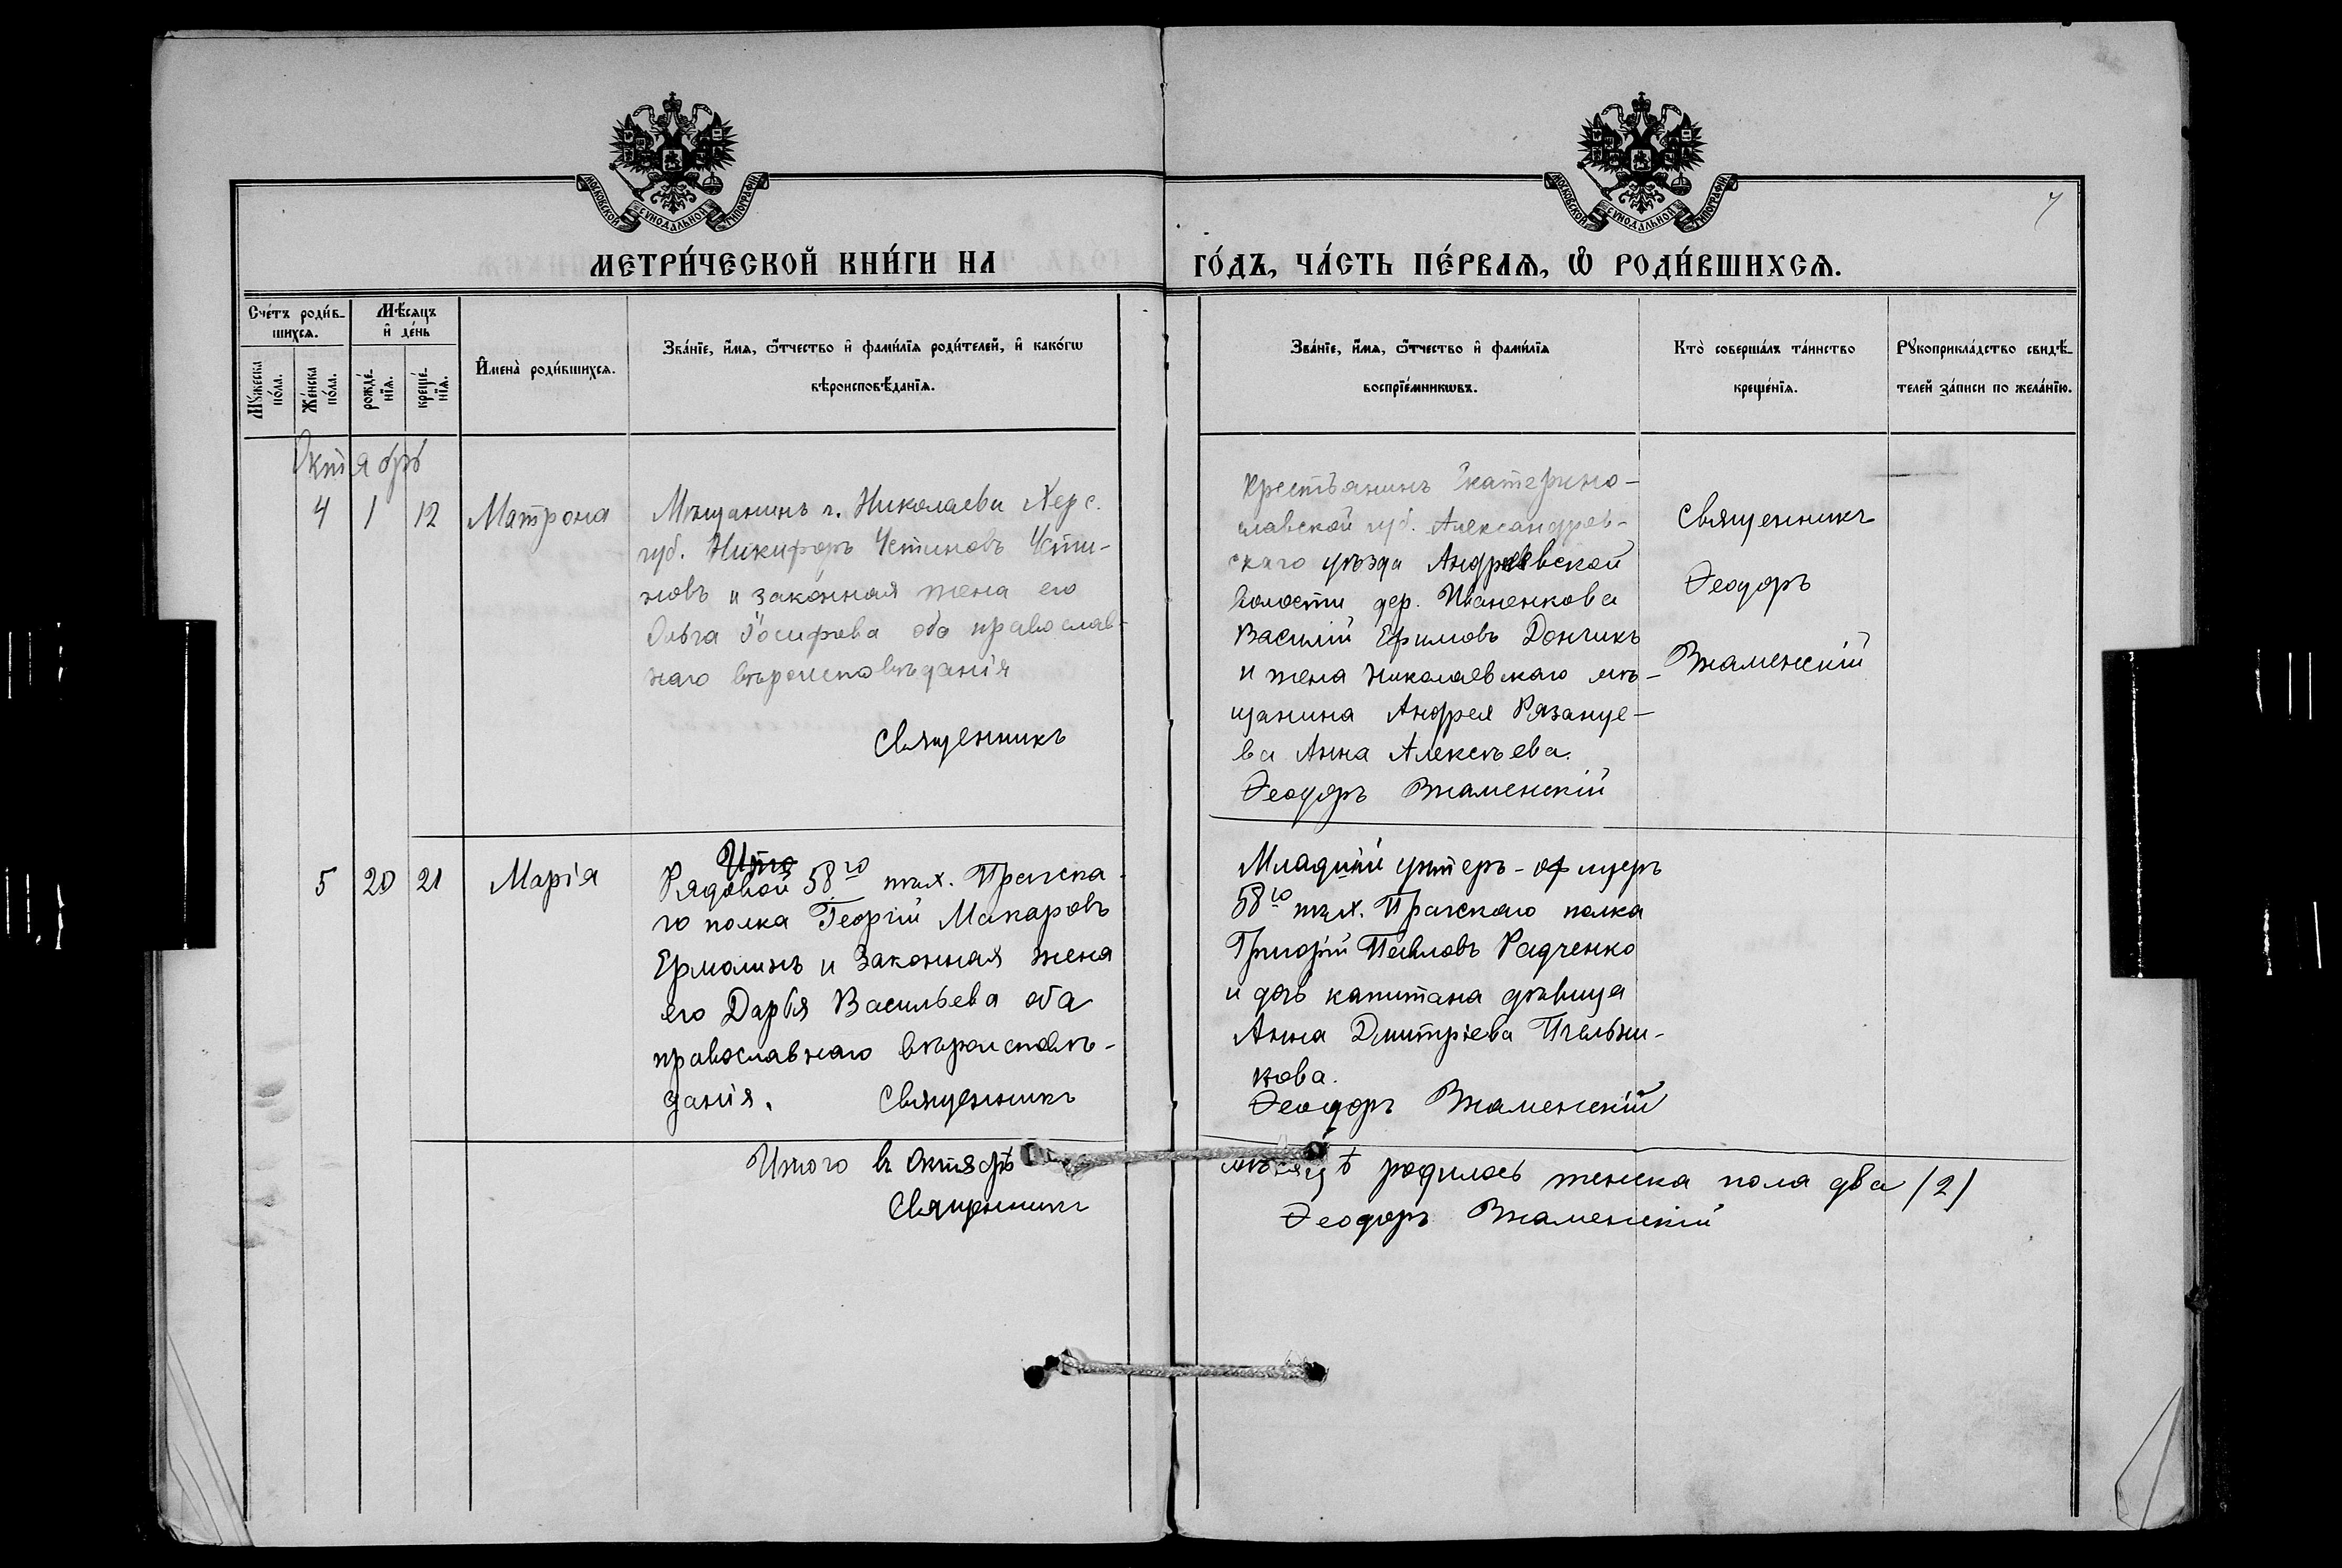 МОСКОВСКОЙ СУНОДАЛЬНОЙ ТИПОГРАФІИ
МОСКОВСКОЙ СУНОДАЛЬНОЙ ТИПОГРАФІИ
7
МЕТРИ́ЧЕСКОЙ КНИ́ГИ НА
ГО́ДЪ, ЧА́СТЬ ПЕ́РВАѦ, Ѡ҆ РОДИ́ВШИХСѦ.
Сче́тъ роди́в-
шихсѧ.
Мѣ́сѧцъ
и҆ де́нь
Мꙋ́жеска
по́ла.
Же́нска
по́ла.
рожде́-
нїѧ.
креще́-
нїѧ.
И҆мена̀ роди́вшихсѧ.
Зва́нїе, и҆́мѧ, ѻ҆́тчество и҆ фами́лїѧ роди́телей, и҆ како́гѡ
вѣроисповѣ́данїѧ.
Зва́нїе, и҆́мѧ, ѻ҆́тчество и҆ фами́лїѧ
воспрїе́мникѡвъ.
Кто̀ соверша́лъ та́инство
креще́нїѧ.
Рꙋкоприкла́дство свидѣ́-
телей за́писи по жела́нїю.
Октябрь
4 1 12 Матрона
Мѣщанинъ г. Николаева Херс.
губ. Никифоръ Устиновъ Усти-
новъ и законная жена его
Ольга Іосифова оба православ-
наго вѣроисповѣданія
Священникъ
Крестьянинъ Екатерино-
славской губ. Александров-
скаго уѣзда Андреевской
волости дер. Иваненкова
Василій Ефимовъ Дончикъ
и жена Николаевскаго мѣ-
щанина Андрея Рязанце-
ва Анна Алексѣева.
Ѳеодоръ Знаменскій
Священникъ
Ѳеодоръ
Знаменскій
5 20 21 Марія
Итго
Рядовой 58го пѣх. Прагска-
го полка Георгій Макаровъ
Ермолинъ и законная жена
его Дарья Васильева оба
православнаго вѣроисповѣ-
данія. Священникъ
Младшій унтеръ-офицеръ
58го пѣх. Прагскаго полка
Григорій Павловъ Радченко
и дочь капитана дѣвица
Анна Дмитріева Пчельни-
кова.
Ѳеодоръ Знаменскій
Итого въ Октябрѣ мѣсяцѣ родилось женска пола два /2/
Священникъ Ѳеодоръ Знаменскій